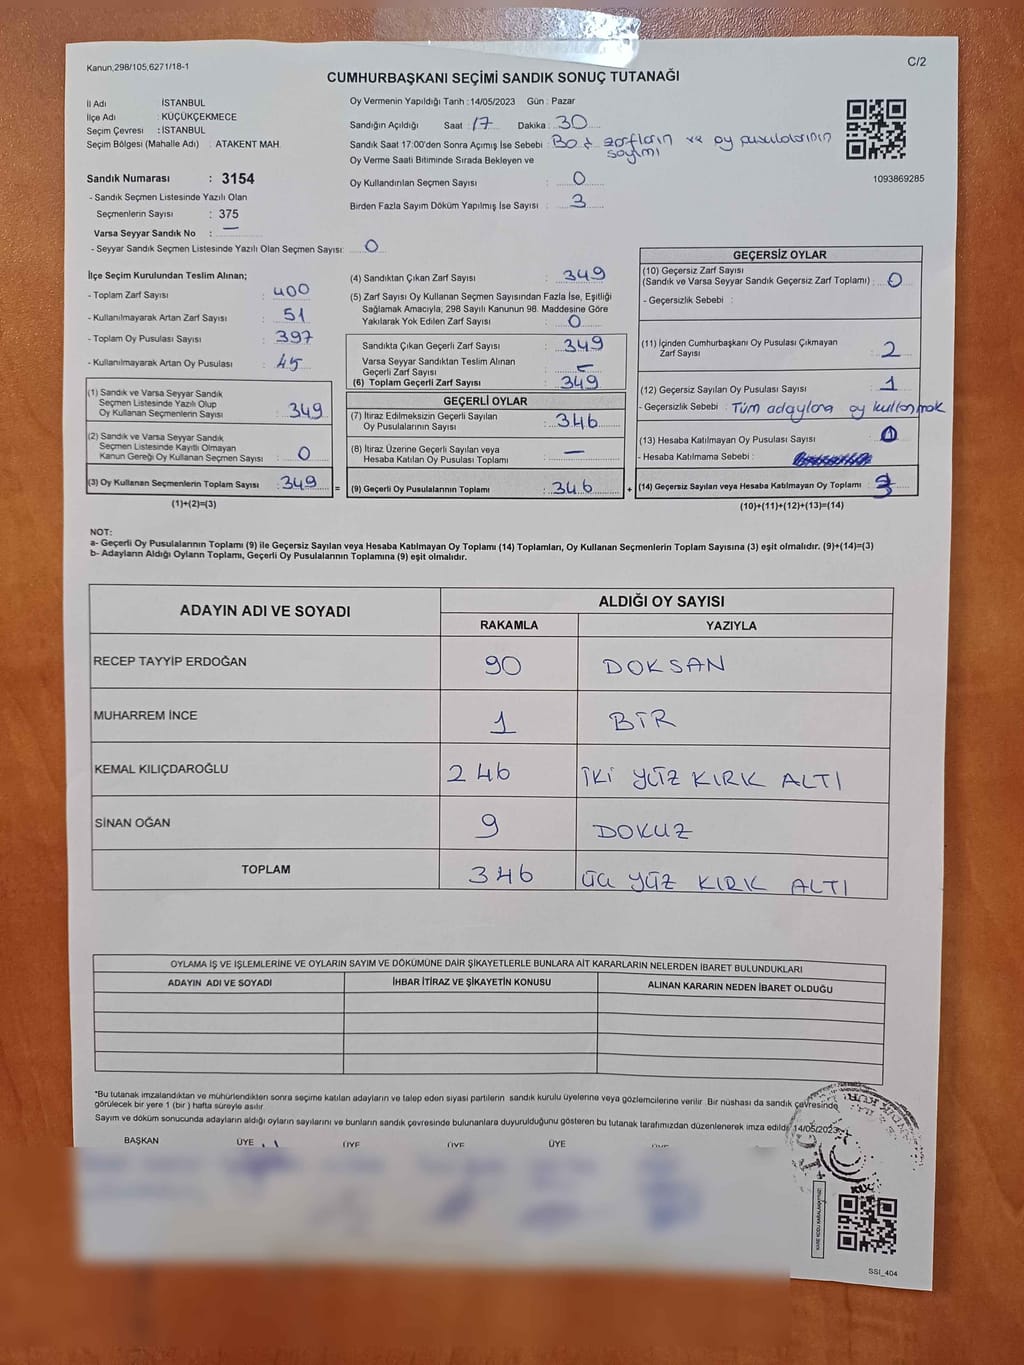 Kanun,298/105,6271/18-1
C/2
CUMHURBAŞKANI SEÇİMİ SANDIK SONUÇ TUTANAĞI
İl Adı : İSTANBUL
İlçe Adı : KÜÇÜKÇEKMECE
Seçim Çevresi : İSTANBUL
Seçim Bölgesi (Mahalle Adı) : ATAKENT MAH.
Sandık Numarası : 3154
- Sandık Seçmen Listesinde Yazılı Olan
Seçmenlerin Sayısı : 375
Varsa Seyyar Sandık No : —
- Seyyar Sandık Seçmen Listesinde Yazılı Olan Seçmen Sayısı: 0
Oy Vermenin Yapıldığı Tarih : 14/05/2023 Gün : Pazar
Sandığın Açıldığı Saat : 17 Dakika : 30
Sandık Saat 17:00'den Sonra Açımış İse Sebebi : Boş zarfların ve oy pusulalarının
sayımı
Oy Verme Saati Bitiminde Sırada Bekleyen ve
Oy Kullandırılan Seçmen Sayısı : 0
Birden Fazla Sayım Döküm Yapılmış İse Sayısı : 3
1093869285
İlçe Seçim Kurulundan Teslim Alınan;
- Toplam Zarf Sayısı : 400
- Kullanılmayarak Artan Zarf Sayısı : 51
- Toplam Oy Pusulası Sayısı : 397
- Kullanılmayarak Artan Oy Pusulası : 45
(1) Sandık ve Varsa Seyyar Sandık
Seçmen Listesinde Yazılı Olup
Oy Kullanan Seçmenlerin Sayısı : 349
(2) Sandık ve Varsa Seyyar Sandık
Seçmen Listesinde Kayıtlı Olmayan
Kanun Gereği Oy Kullanan Seçmen Sayısı : 0
(3) Oy Kullanan Seçmenlerin Toplam Sayısı : 349
(1)+(2)=(3)
(4) Sandıktan Çıkan Zarf Sayısı : 349
(5) Zarf Sayısı Oy Kullanan Seçmen Sayısından Fazla İse, Eşitliği
Sağlamak Amacıyla; 298 Sayılı Kanunun 98. Maddesine Göre
Yakılarak Yok Edilen Zarf Sayısı : 0
Sandıkta Çıkan Geçerli Zarf Sayısı : 349
Varsa Seyyar Sandıktan Teslim Alınan
Geçerli Zarf Sayısı :
(6) Toplam Geçerli Zarf Sayısı : 349
GEÇERLİ OYLAR
(7) İtiraz Edilmeksizin Geçerli Sayılan
Oy Pusulalarının Sayısı : 346
(8) İtiraz Üzerine Geçerli Sayılan veya
Hesaba Katılan Oy Pusulası Toplamı : —
(9) Geçerli Oy Pusulalarının Toplamı : 346
GEÇERSİZ OYLAR
(10) Geçersiz Zarf Sayısı
(Sandık ve Varsa Seyyar Sandık Geçersiz Zarf Toplamı) : 0
- Geçersizlik Sebebi :
(11) İçinden Cumhurbaşkanı Oy Pusulası Çıkmayan
Zarf Sayısı : 2
(12) Geçersiz Sayılan Oy Pusulası Sayısı : 1
- Geçersizlik Sebebi : Tüm adaylara oy kullanmak
(13) Hesaba Katılmayan Oy Pusulası Sayısı : 0
- Hesaba Katılmama Sebebi :
(14) Geçersiz Sayılan veya Hesaba Katılmayan Oy Toplamı : 3
(10)+(11)+(12)+(13)=(14)
NOT:
a- Geçerli Oy Pusulalarının Toplamı (9) ile Geçersiz Sayılan veya Hesaba Katılmayan Oy Toplamı (14) Toplamları, Oy Kullanan Seçmenlerin Toplam Sayısına (3) eşit olmalıdır. (9)+(14)=(3)
b- Adayların Aldığı Oyların Toplamı, Geçerli Oy Pusulalarının Toplamına (9) eşit olmalıdır.
ADAYIN ADI VE SOYADI ALDIĞI OY SAYISI
RAKAMLA YAZIYLA
RECEP TAYYİP ERDOĞAN 90 DOKSAN
MUHARREM İNCE 1 BİR
KEMAL KILIÇDAROĞLU 246 İKİ YÜZ KIRK ALTI
SİNAN OĞAN 9 DOKUZ
TOPLAM 346 ÜÇ YÜZ KIRK ALTI
OYLAMA İŞ VE İŞLEMLERİNE VE OYLARIN SAYIM VE DÖKÜMÜNE DAİR ŞİKAYETLERLE BUNLARA AİT KARARLARIN NELERDEN İBARET BULUNDUKLARI
ADAYIN ADI VE SOYADI İHBAR İTİRAZ VE ŞİKAYETİN KONUSU ALINAN KARARIN NEDEN İBARET OLDUĞU
*Bu tutanak imzalandıktan ve mühürlendikten sonra seçime katılan adayların ve talep eden siyasi partilerin sandık kurulu üyelerine veya gözlemcilerine verilir. Bir nüshası da sandık çevresinde
görülecek bir yere 1 (bir ) hafta süreyle asılır.
Sayım ve döküm sonucunda adayların aldığı oyların sayılarını ve bunların sandık çevresinde bulunanlara duyurulduğunu gösteren bu tutanak tarafımızdan düzenlenerek imza edildi. 14/05/2023
BAŞKAN ÜYE ÜYE ÜYE ÜYE ÜYE
SSI_404